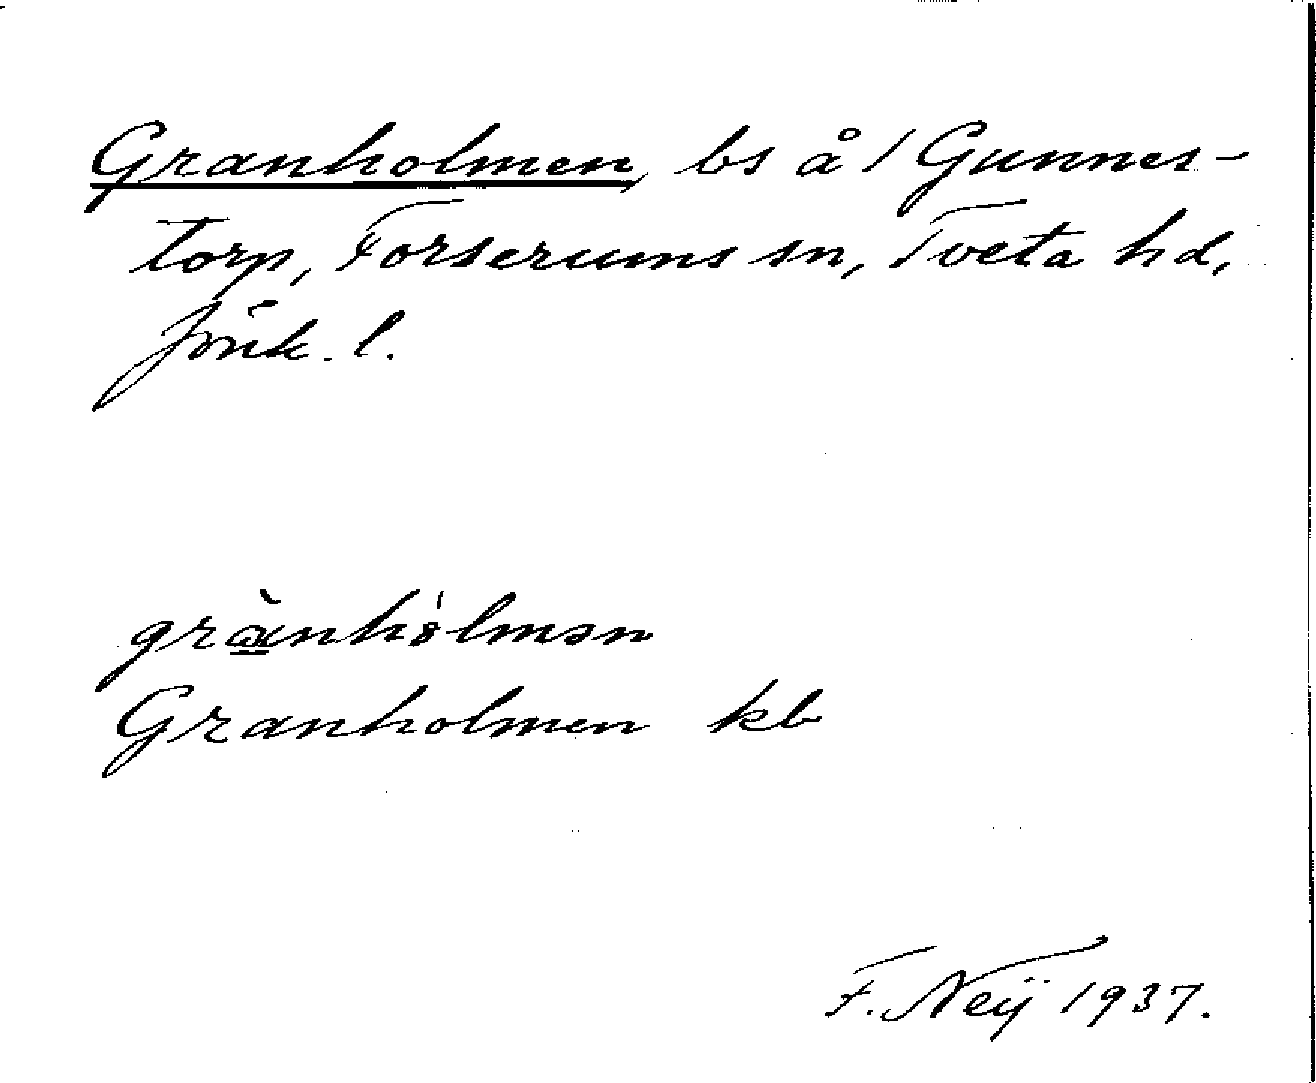 Granholmen, bs å / Gunnes-
torp, Forserums sn, Tveta hd,
Jönk. l.
grànhólmən
Granholmen kb
F. Neij 1937.